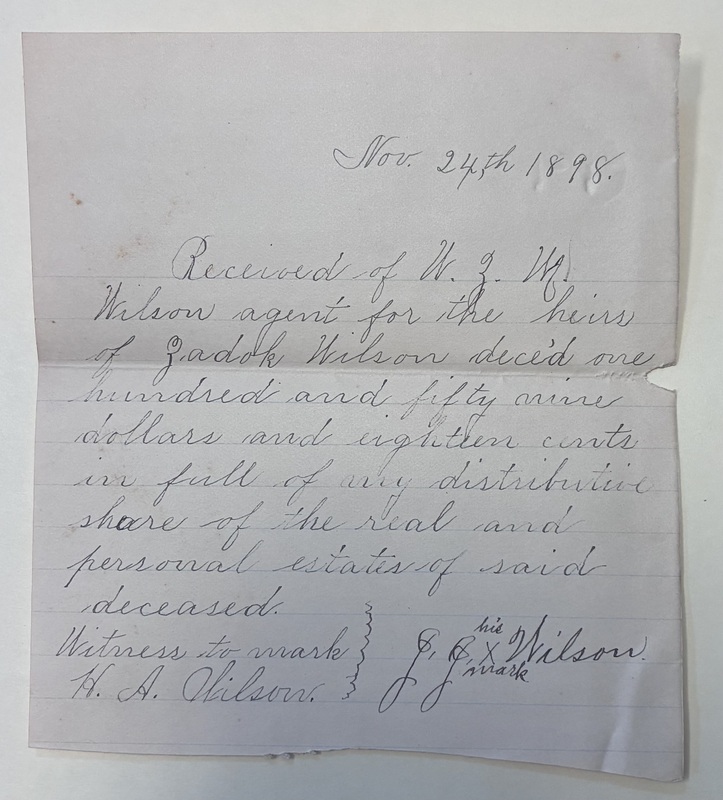 Nov. 24th 1898.
Received of W. Z. W.
Wilson agent for the heirs
of Zadok Wilson dece'd one
hundred and fifty nine
dollars and eighteen cents
in full of my distributive
share of the real and
personal estates of said
deceased.
Witness to mark
H. A. Wilson.
his
J. J. X Wilson.
mark